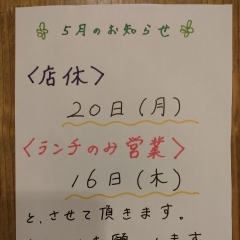 5月のお知らせ
〈店休〉
20日(月)
〈ランチのみ営業〉
16日(木)
と、させて頂きます。